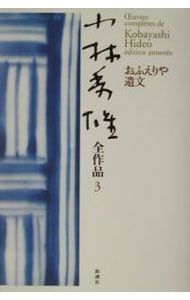 Œuvres
complètes de
Kobayashi
Hideo
édition annotée
おふえりや
遺文
小林秀雄
全作品3
新潮社